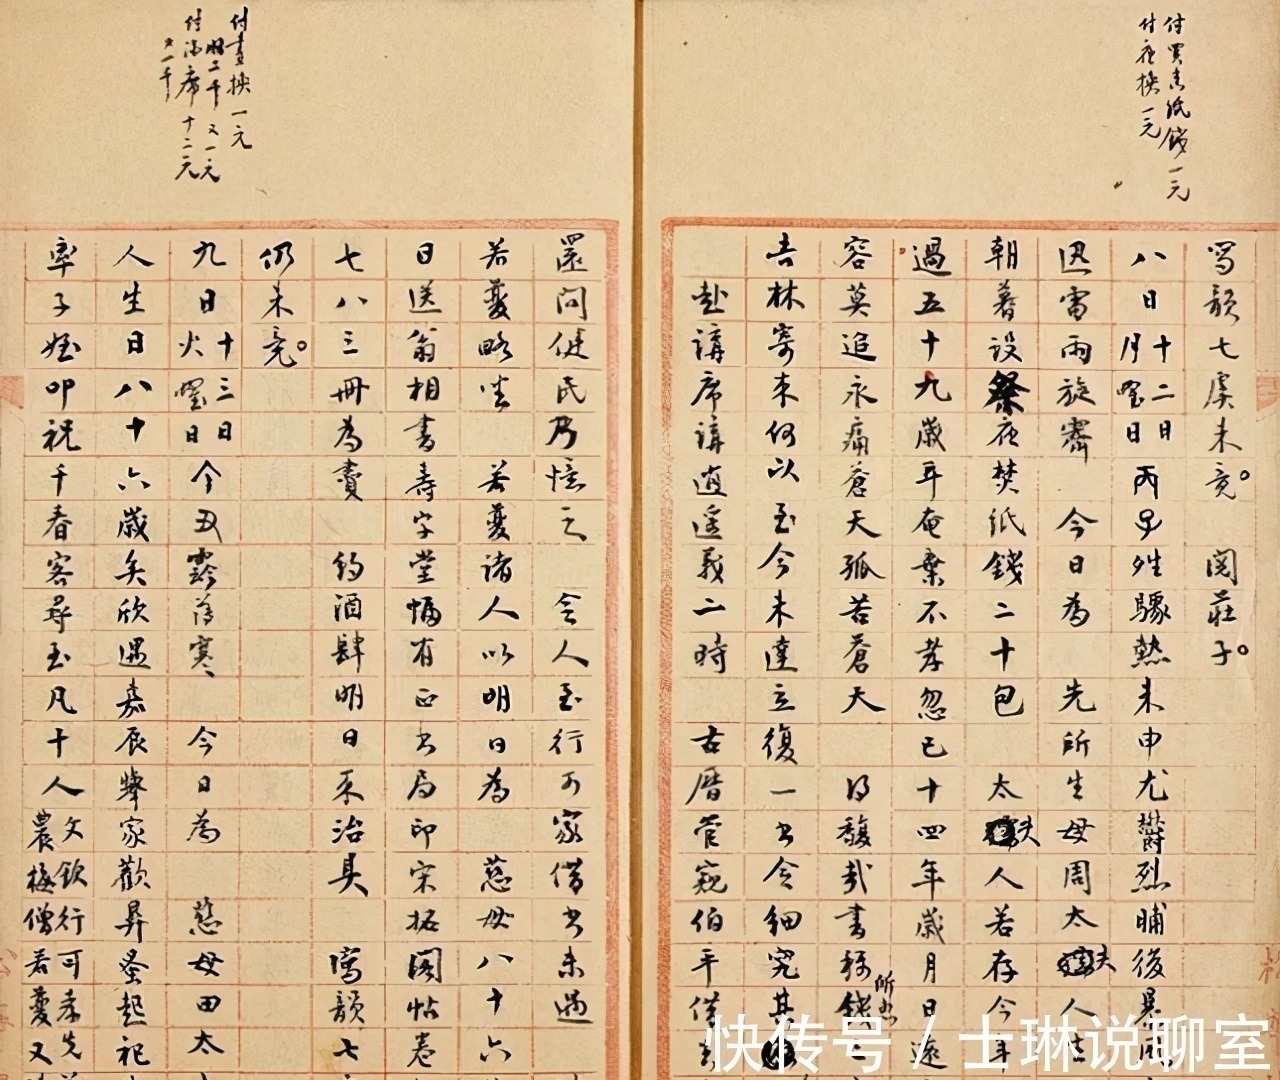 付買表紙錢一元
付夜換一元
寫韻七虞未竟。　閱莊子。
八日十二日月曜日丙子姓驟熱未申尤鬱烈晡後暴風
因雷雨旋霽　今日為　先所生母周太夫人生
朝暮設祭夜焚紙錢二十包　太夫人若存今年
過五十九歲耳奄棄不孝忽已十四年歲月日遠
容莫追永痛蒼天孤苦蒼天　得馥哉書稱錢所
吉林寄來何以至今未達立復一書令細究其
赴講席講逍遙義二時　古曆管窺伯平借去
付畫換一元
二千又一元
付酒席十二元
又一千
還問健民乃憶之　令人至行可家借書未遇
若蘷略坐　若蘷諸人以明日為　慈母八十六
日送翁相書壽字堂幅有正書局印宋拓閣帖卷
七八三冊為賣　約酒肆明日來治具　寫韻七
仍未竟。
九日十三日火曜日今丑霧落寒　今日為　慈母田太
人生日八十六歲矣欣遇嘉辰舉家歡昇蚤起祀
率子姪叩祝千春客尋玉凡十人文欽行可孝先農梅僧若蘷又
快传号 / 士琳说聊室